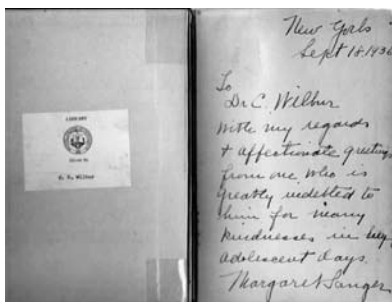 LIBRARY
Given by
Wilbur
New York
Sept 18. 1936
To
Dr C. Wilbur
With my regards
& affectionate greetings
from one who is
greatly indebted to
him for many
kindnesses in her
adolescent days.
Margaret Sanger